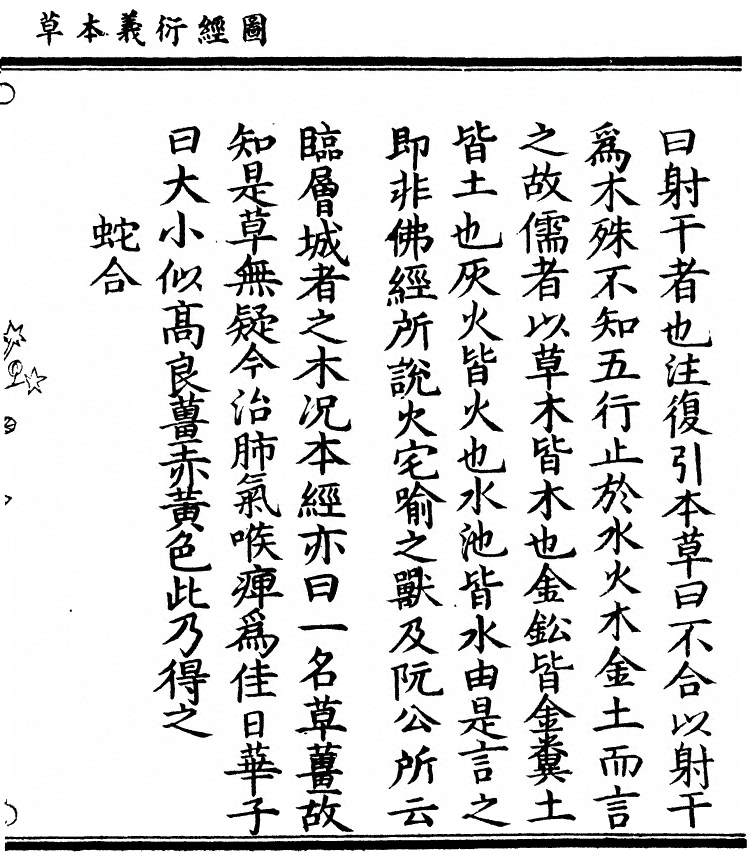 圖經衍義本草
曰射干者也注復引本草曰不合以射干
爲木殊不知五行止於水火木金土而言
之故儒者以草木皆木也金鈆皆金糞土
皆土也灰火皆火也水池皆水由是言之
即非佛經所說火宅喻之獸及阮公所云
臨層城者之木况本經亦曰一名草薑故
知是草無疑今治肺氣喉痺爲佳日華子
曰大小似高良薑赤黃色此乃得之
蛇合